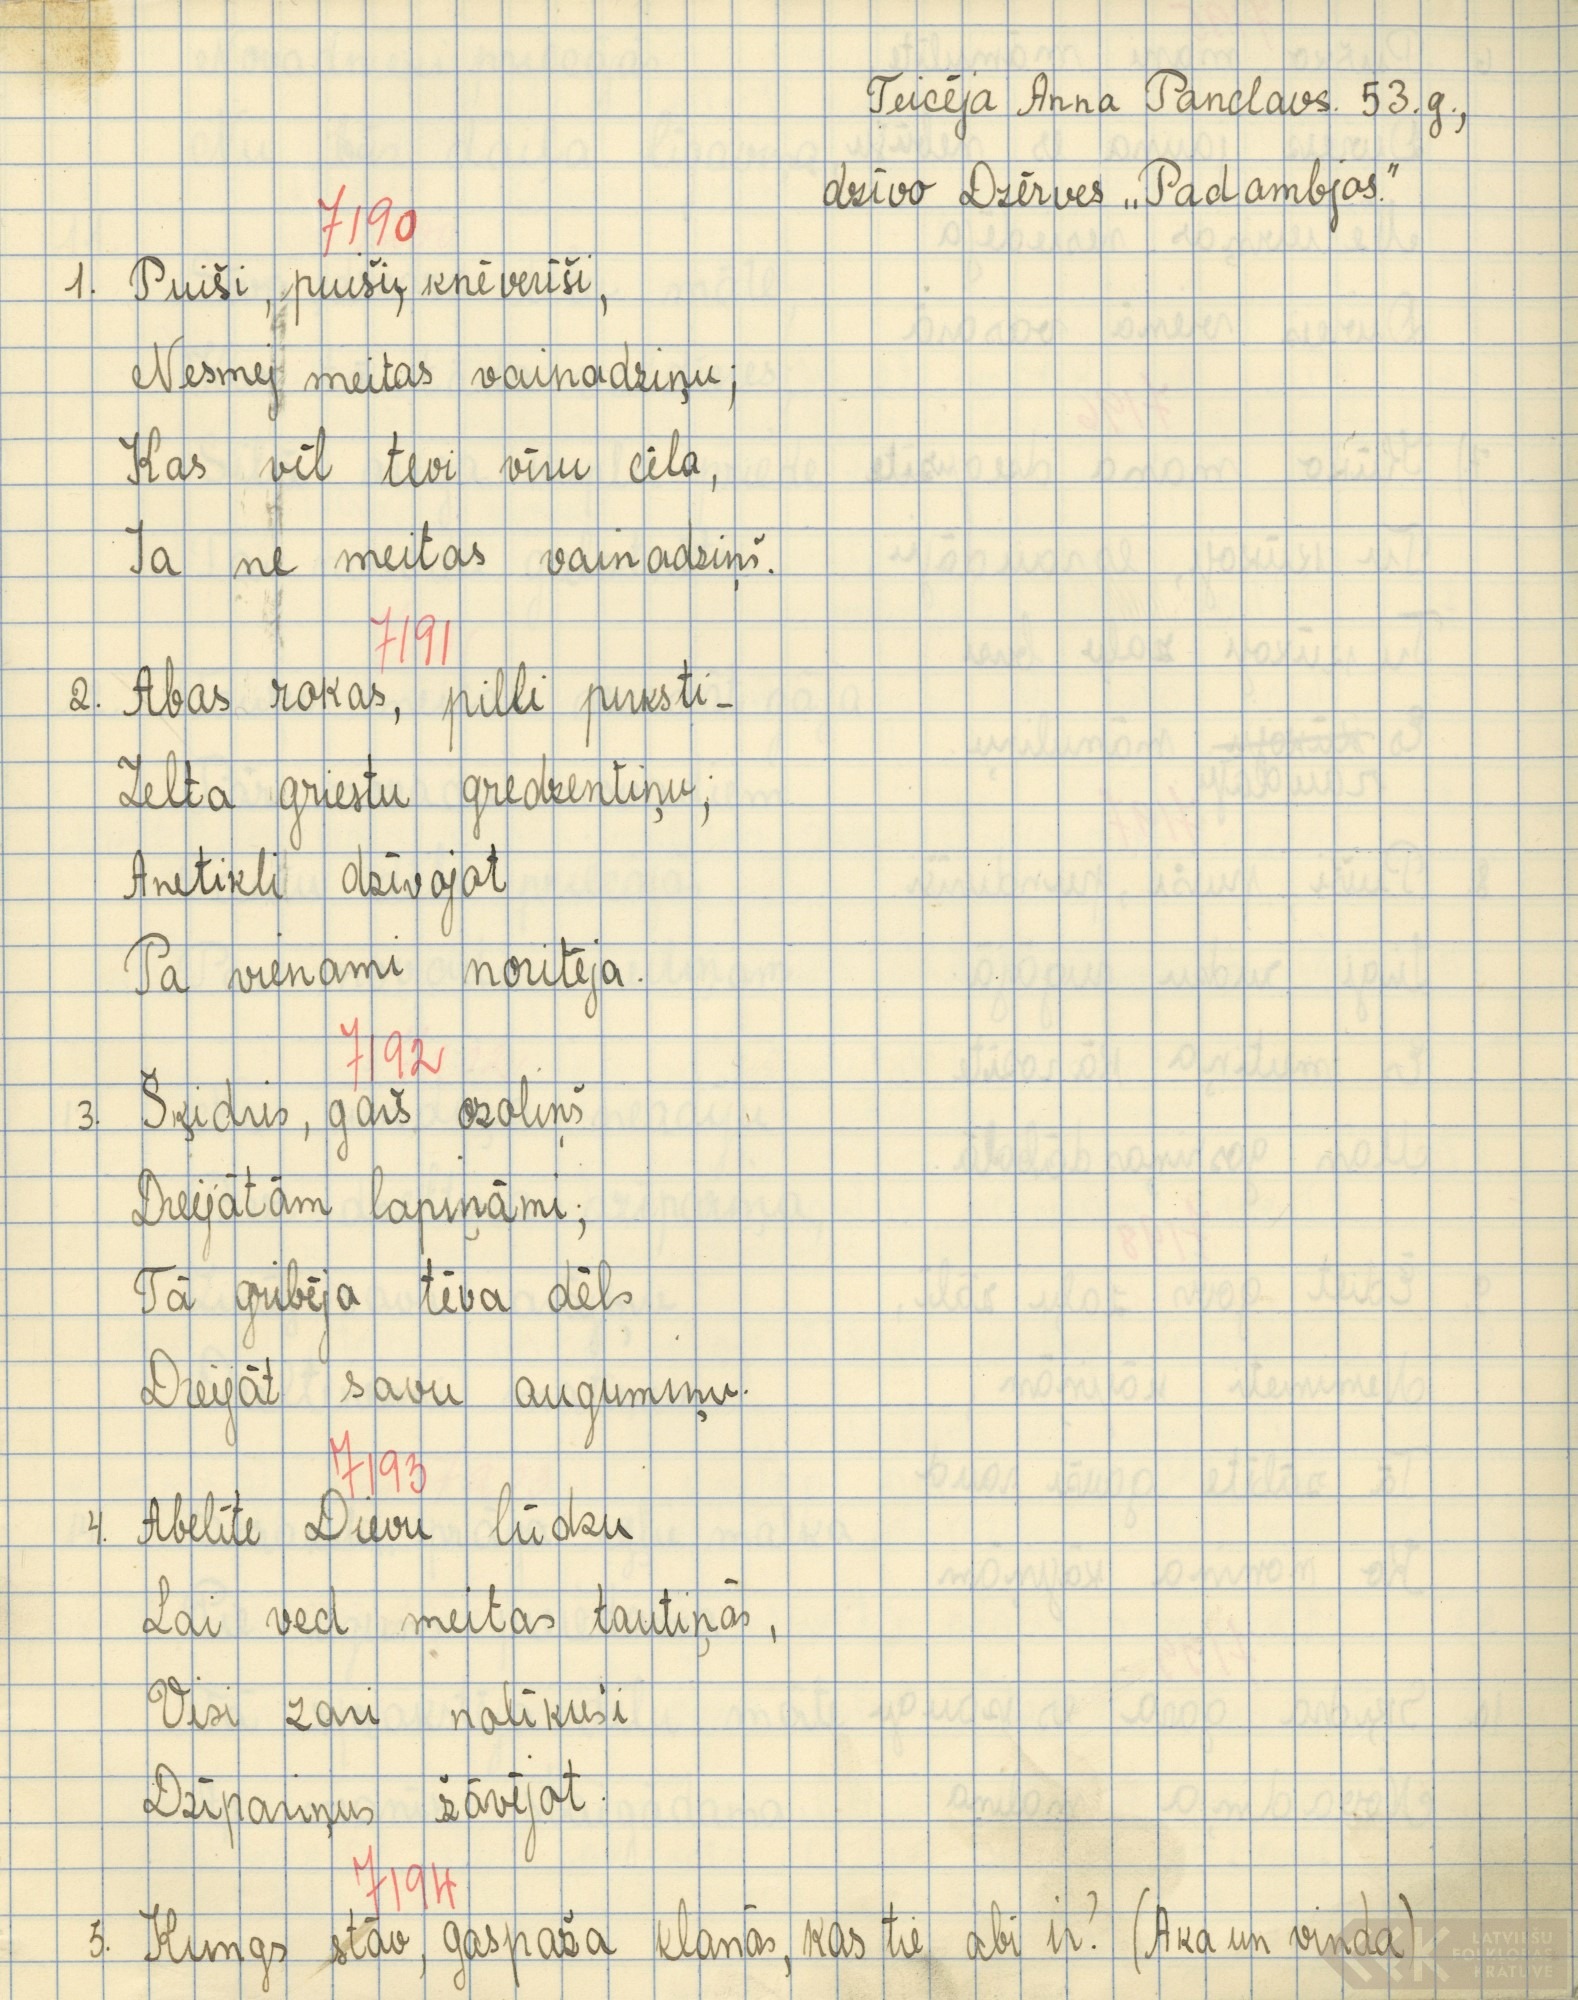 Teicēja Anna Panclavs. 53.g.,
dzīvo Dzērves „Padambjos."
7190
1. Puiši, puiši, knēverīši,
Nesmej meitas vainadziņu;
Kas vīl tevi vīru cēla,
Ja ne meitas vainadziņš.
7191
2. Abas rokas, pilli pirksti -
Zelta griestu gredzentiņu;
Anetikli dzīvojot
Pa vienami noritēja.
7192
3. Šķidris, garš ozoliņš
Dreijātām lapiņāmi;
Tā gribēja tēva dēls
Dreijāt savu augumiņu.
7193
4. Abelīte Dievu lūdzu
Lai ved meitas tautiņās,
Visi zari nolīkuši
Dzīpariņus žāvējot.
7194
5. Kungs stāv, gaspaža klanās, kas tie abi ir? (Aka un vinda)
LATVIEŠU
FOLKLORAS
KRĀTUVE